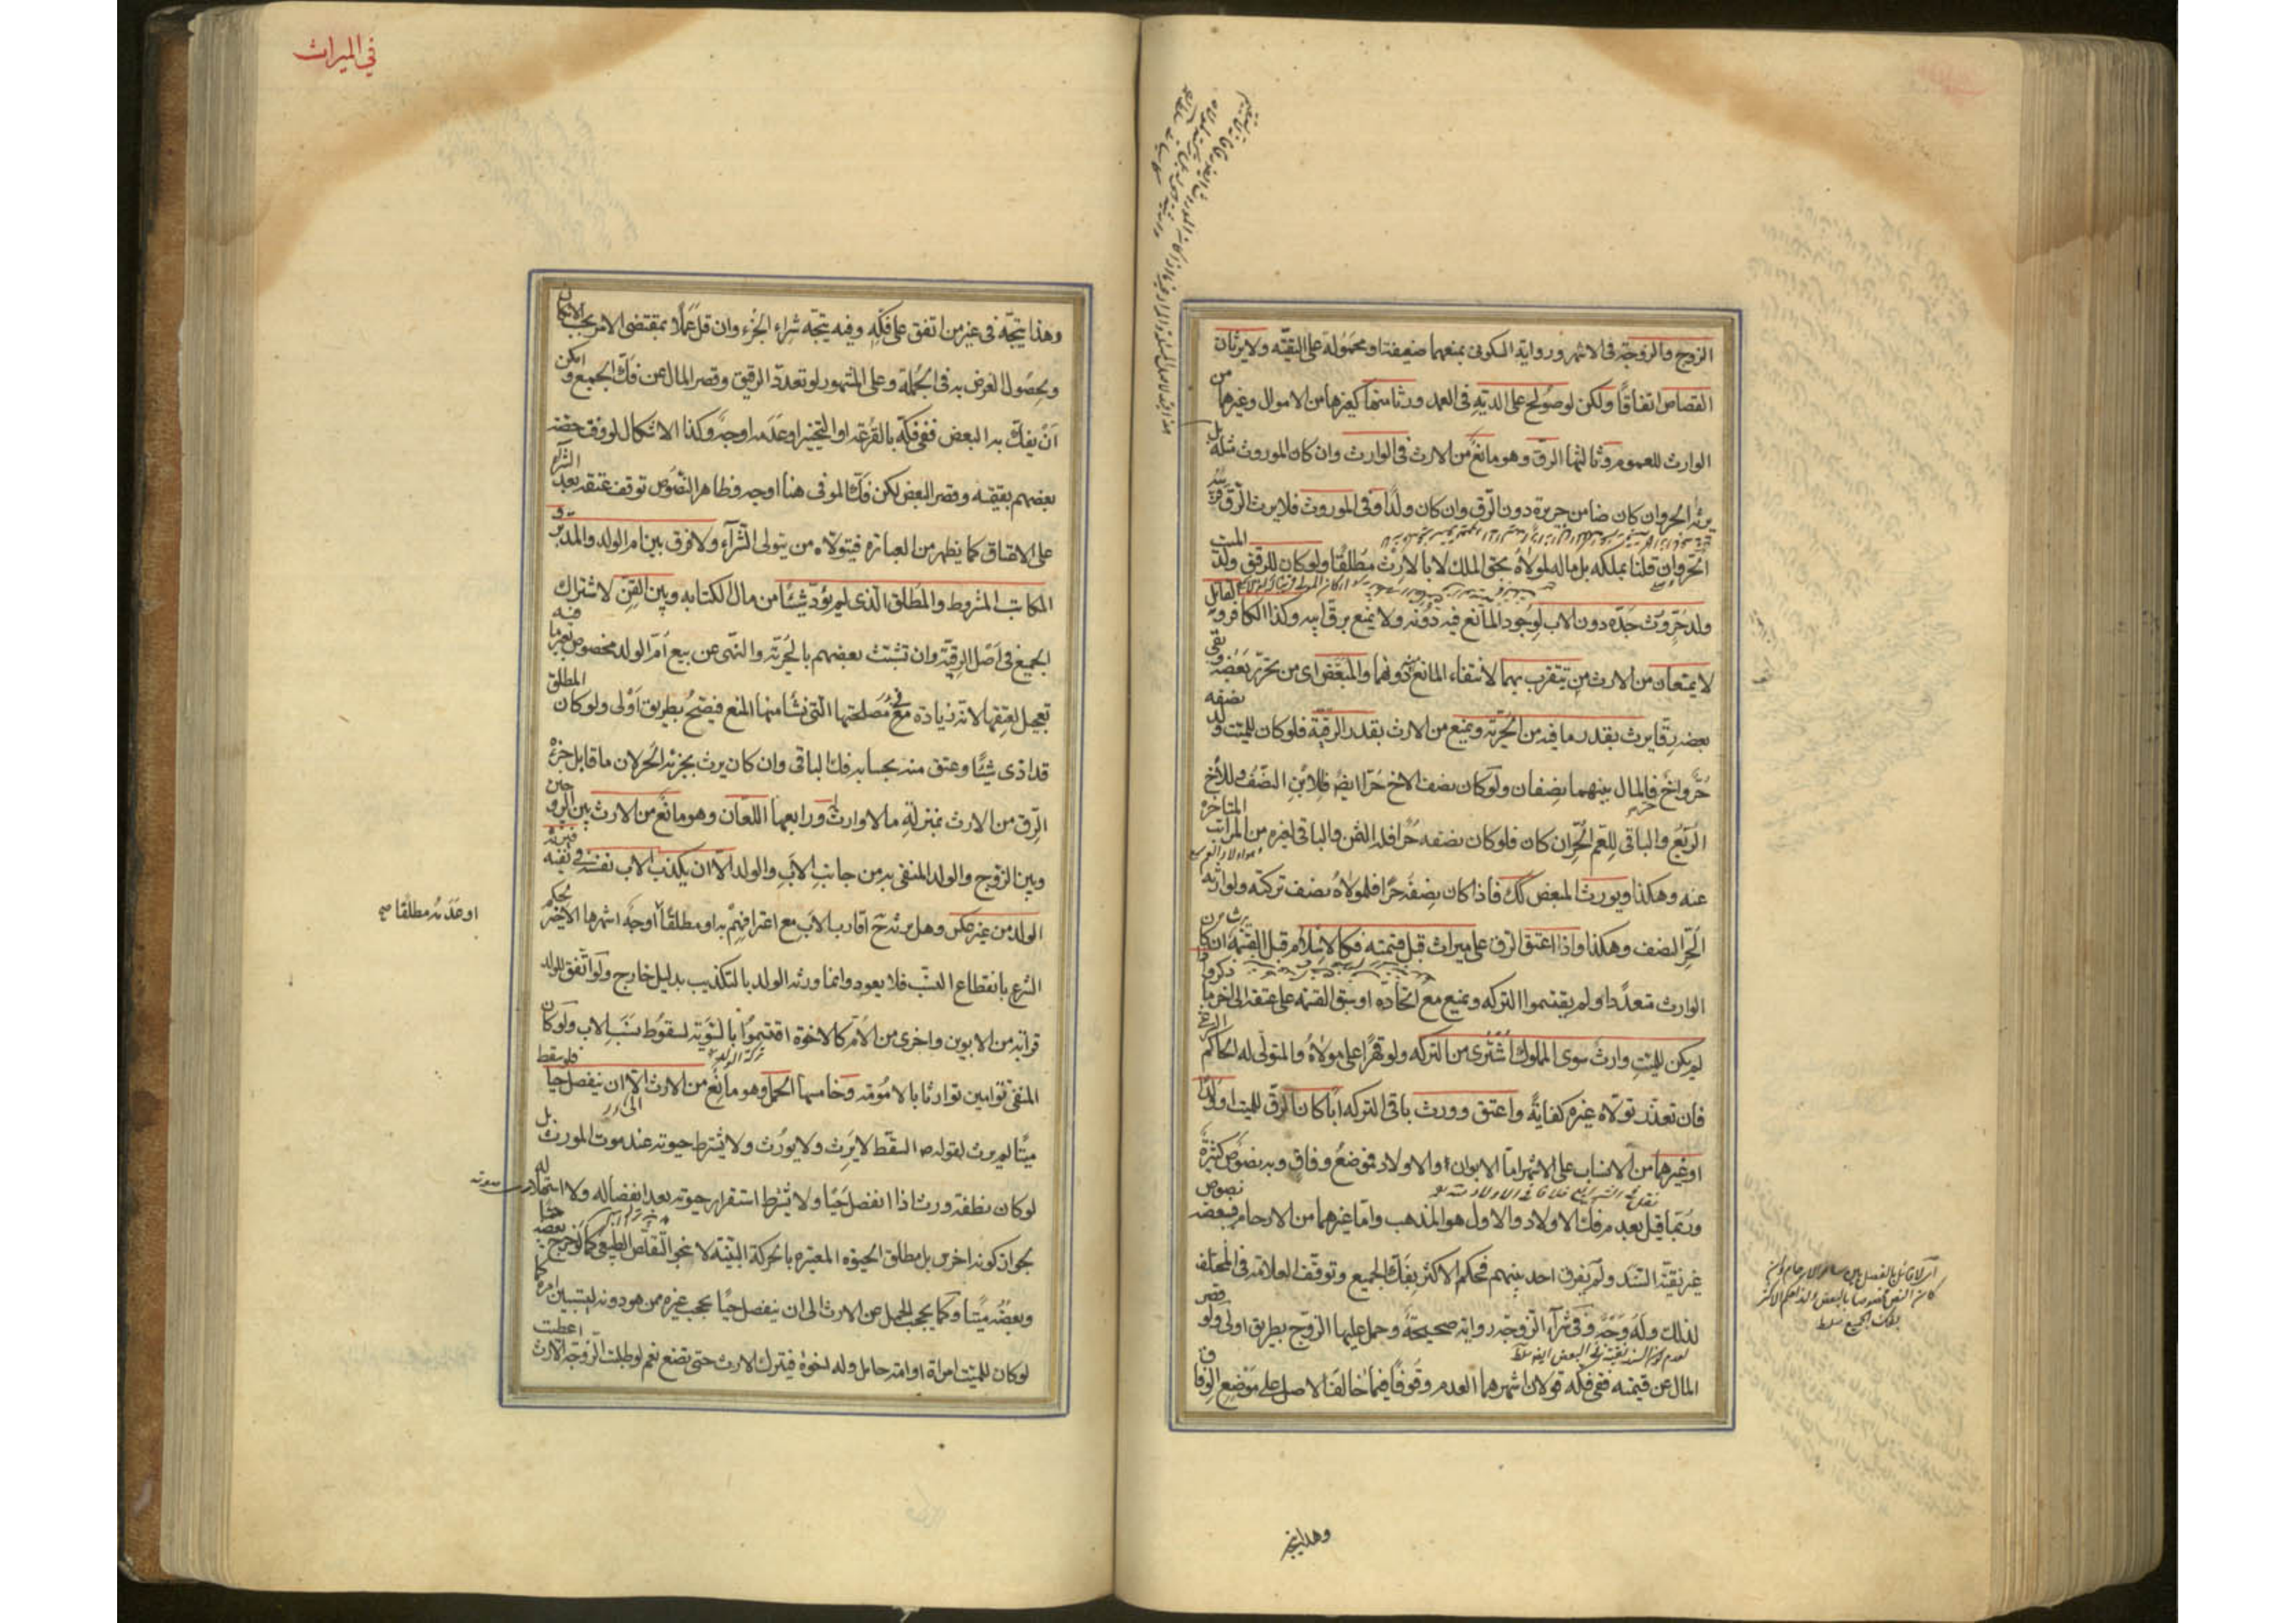 الزوج والزوجة فى الاشهر ورواية السكونى بمنعهما ضعيفة او محمولة على التقيّة ولا يرثان
القصاص اتفاقًا ولكن لو صولح على الدية فى العمد ورثا منها كغيرها من الاموال وغيرهما من
الوارث للعموم وثالثها الرق وهو مانع من الارث فى الوارث وان كان الموروث مثله بل
يرثه الحر وان كان ضامن جريرة دون الرق وان كان ولدًا وفى الموروث فلا يرث الرق قريبه
الحر وان قلنا بملكه بل ماله لمولاه بحق الملك لا بالارث مطلقًا ولو كان للرق ولد الميت
ولد حرّ ورث جدّه دون الاب لوجود المانع فيه دونه ولا يمنع برقّ ابيه وكذا الكافر والقاتل
لا يمنعان من الارث من يتقرب بهما لانتفاء المانع منه دونهما والمبعّض اى من تحرّر بعضه وبقى
بعضه رقّا يرث بقدر ما فيه من الحرّية ويمنع من الارث بقدر الرقية فلو كان للميت ولد نصفه
حُرّ واخ فالمال بينهما نصفان ولو كان نصف الاخ حُرّا ايضًا فللابن النصف وللاخ
الرّبع والباقى للعم الحرّ ان كان فلو كان نصفه حُرّا فله الثمن والباقى لغيره من المراتب المتاخرة
عنه وهكذا ويورث المبعض كك فاذا كان نصفه حرّا فلمولاه نصف تركته ولوارثه
الحرّ النصف وهكذا واذا اعتق الرق على ميراث قبل قسمته فكالاسلام قبل القسمة يرث ان كان
الوارث متعدّدا ولم يقتسموا التركه ويمنع مع اتحاده او سبق القسمة على عتقه الى اخر ما ذكروا
لم يكن للميت وارث سوى المملوك اشترى من التركه ولو قهرًا على مولاه والمتولّى له الحاكم الشرعى
فان تعذّر تولّاه غيره كفايةً واعتق وورث باقى التركه أبًا كان الرق للميت او ولدًا
او غيرهما من الانساب على الاشهر امّا الابوان والاولاد فموضع وفاق وبه نصوص كثيرة
وربّما قيل بعدم فك الاولاد والاول هو المذهب واما غيرهما من الارحام فببعضه نصوص
غير نقيّة السّند ولم يفرق احد بينهم فحكم الاكثر بفكّ الجميع وتوقّف العلامه فى المختلف
لذلك وله وَجْه وفى شرآء الزوجة رواية صحيحة وحمل عليها الزوج بطريق اولى ولو قصر
المال عن قيمته ففى فكّه قولان اشهرهما العدم وقوفًا فيما خالف الاصل على موضع الوفاق
آه لا قائل بالفصل بين سائر الارحام وان
كان النص مخصوصا بالبعض ولذا حكم الاكثر
بفك الجميع
وهذا يتجه
فى الميراث
وهذا يتجّه فى غير من اتفق على فكّه وفيه يتجّه شراء الجُزء وان قلّ عملًا بمقتضى الامر بحسب الامكان
ولحصول الغرض به فى الجُملة وعلى المشهور لو تعدّد الرقيق وقصر المال عن فكّ الجميع وامكن
أنْ يفكّ به البعض ففى فكّه بالقُرعة او التخيير او عَدمه اوجه وكذا الاشكال لو وفى حصّة
بعضهم بقيمته وقصر البعض لكن فكّ الموفى هنا اوجه وظاهر النّصوص توقف عتقه بعد الشراء
على الاعتاق كما يظهر من العبارة فيتولاه من يتولى الشّرآء ولا فرق بين ام الولد والمدبّر و
المكاتب المشروط والمُطلق الذى لم يؤدّ شيئًا من مال الكتابه وبين القن لاشتراك
الجميع فى أصل الرقيّة وان تشبّث بعضهم بالحُرّية والنّهى عن بيع أمّ الولد مخصوص بغير ما فيه
تعجيل لعتقها لانّه زيادة فى مصلحتها الّتى نشا منها المنع فيصحّ بطريق اولى ولو كان المطلق
قد ادّى شيئًا وعتق منه بحسابه فكّ الباقى وان كان يرث بجزئه الحرّ لان ما قابل جزءه
الرّق من الارث بمنزلة ما لا وارث له ورابعها اللعان وهو مانع من الارث بين الزوجين
وبين الزوج والولد المنفى به من جانب الاب والولد الّا ان يكذب الاب نفسه فى نفيه فيرثه
الولد من غير عكس وهل يرثه ح اقارب الاب مع اعترافهم به او مطلقًا اوجه اشهرها الاخير لحكم
او عدمه مطلقًا صح
الشرع بانقطاع النسب فلا يعود وانما ورثه الولد بالتكذيب بدليل خارج ولو اتفق للولد
قرابة من الابوين واخرى من الام كالاخوة اقتسموا بالسّوية لسقوط نسب الاب ولو كان
المنفىّ توامين توارثا بالامومة وخامسها الحمل وهو مانع من الارث الّا ان ينفصل حيًّا فلو سقط
ميّتًا لم يرث لقوله ص السقط لا يرث ولا يورث ولا يشترط حيوته عند موت المورث بل
لو كان نطفة ورث اذا انفصل حيًا ولا يشترط استقرار حيوته بعد انفصاله ولا استهلاله
لجواز كونه اخرس بل مطلق الحيوة المعتبره بالحركة البيّنة لا نحو التقلّص الطبيعى كما لو خرج بعضه حيًّا
وبعضُه ميّتًا وكما يحجب الحمل عن الارث الى ان ينفصل حيًا يحجب غيره ممن هو دونه ليستبين امره كما
لو كان للميّت امراة او امة حامل وله اخوة فيترك الارث حتى تضع نعم لو طلبت الزّوجة الارث اعطيت